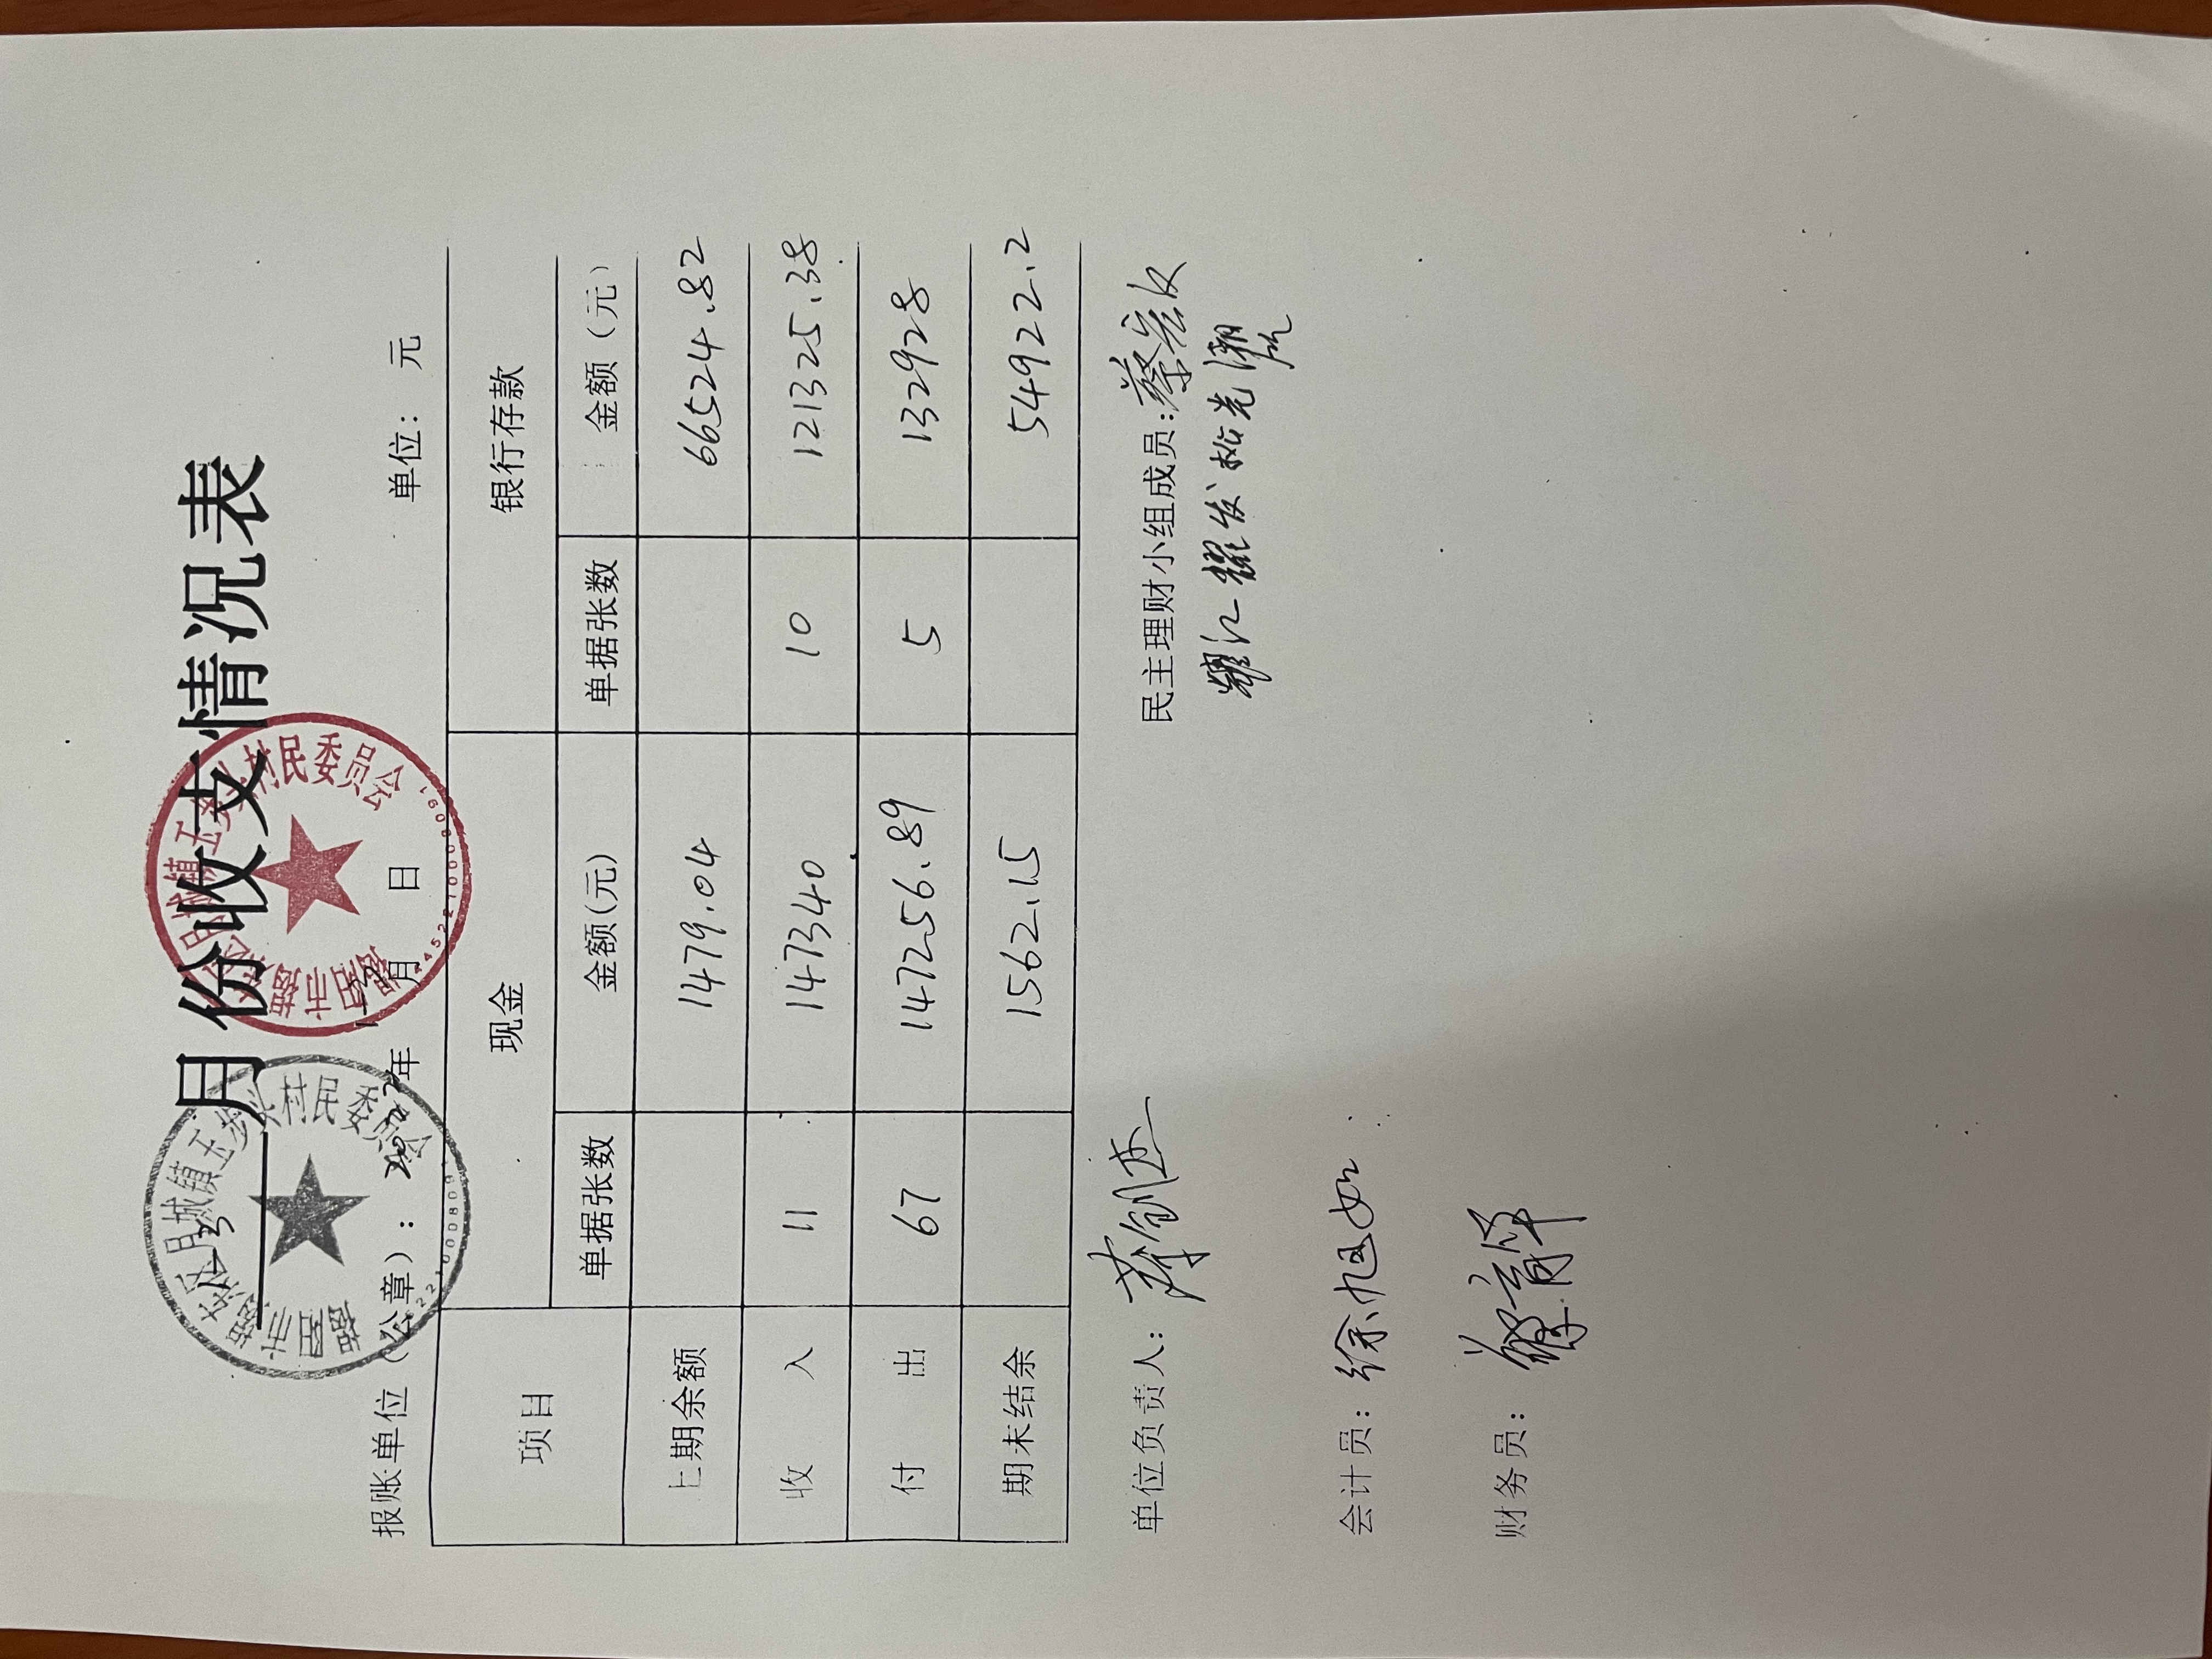 月份收支情况表
报账单位（公章）： 年 月 日 单位：元
项目 现金 银行存款
单据张数 金额(元) 单据张数 金额（元）
上期余额 1479.04 66524.82
收入 11 147340 10 121325.38
付出 67 147256.89 5 132928
期末结余 1562.15 54922.2
单位负责人： 民主理财小组成员：蔡
会计员：徐旭如
财务员：
村民委员会
村民委员会